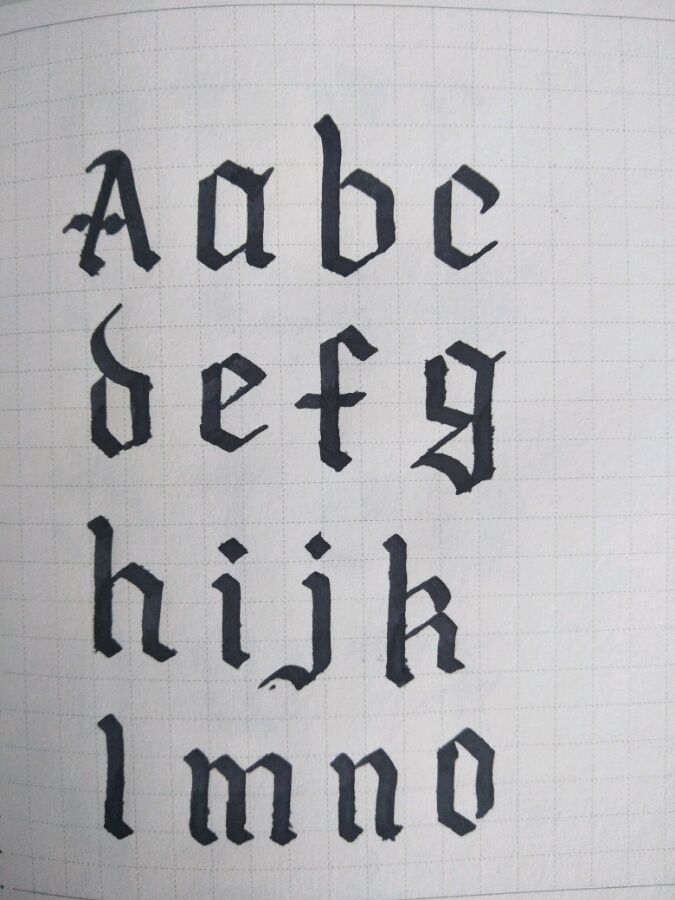 Aabc
defg
hijk
lmno